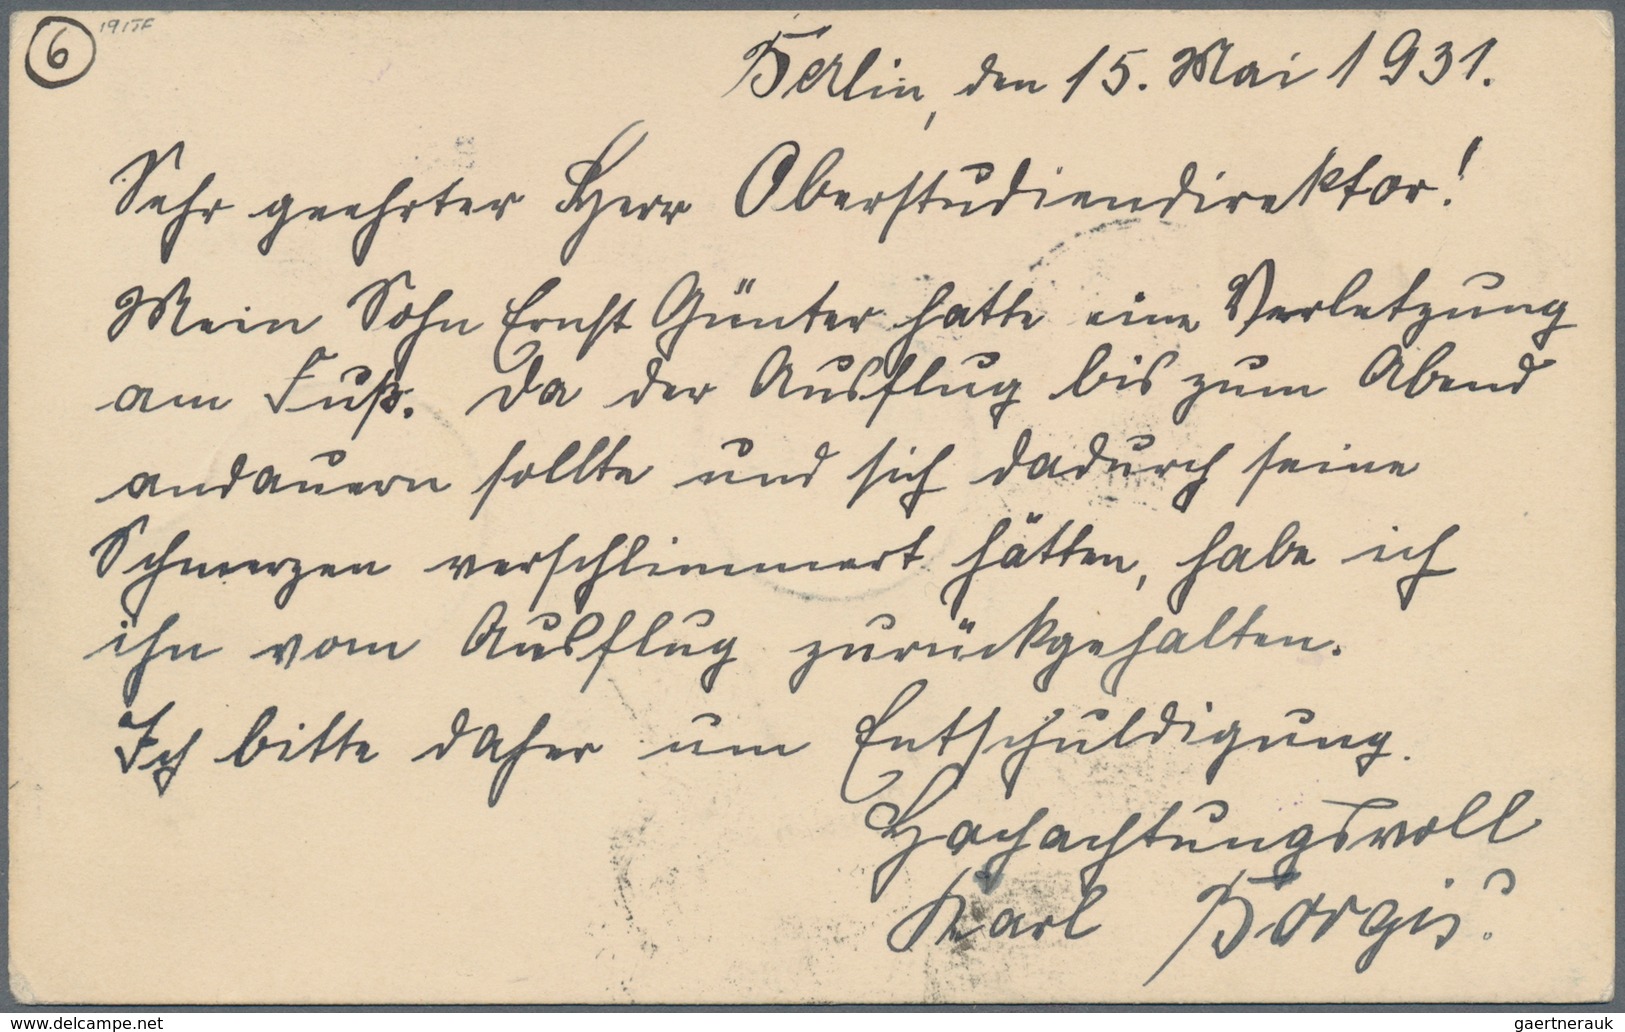 6
Berlin, den 15. Mai 1931.
Sehr geehrter Herr Oberstudiendirektor!
Mein Sohn Ernst Günter hatte eine Verletzung
am Fuß. Da der Ausflug bis zum Abend
andauern sollte und sich dadurch seine
Schmerzen verschlimmert hätten, habe ich
ihn vom Ausflug zurückgehalten.
Ich bitte daher um Entschuldigung.
Hochachtungsvoll
Karl
www.delcampe.net
gaertnerauk